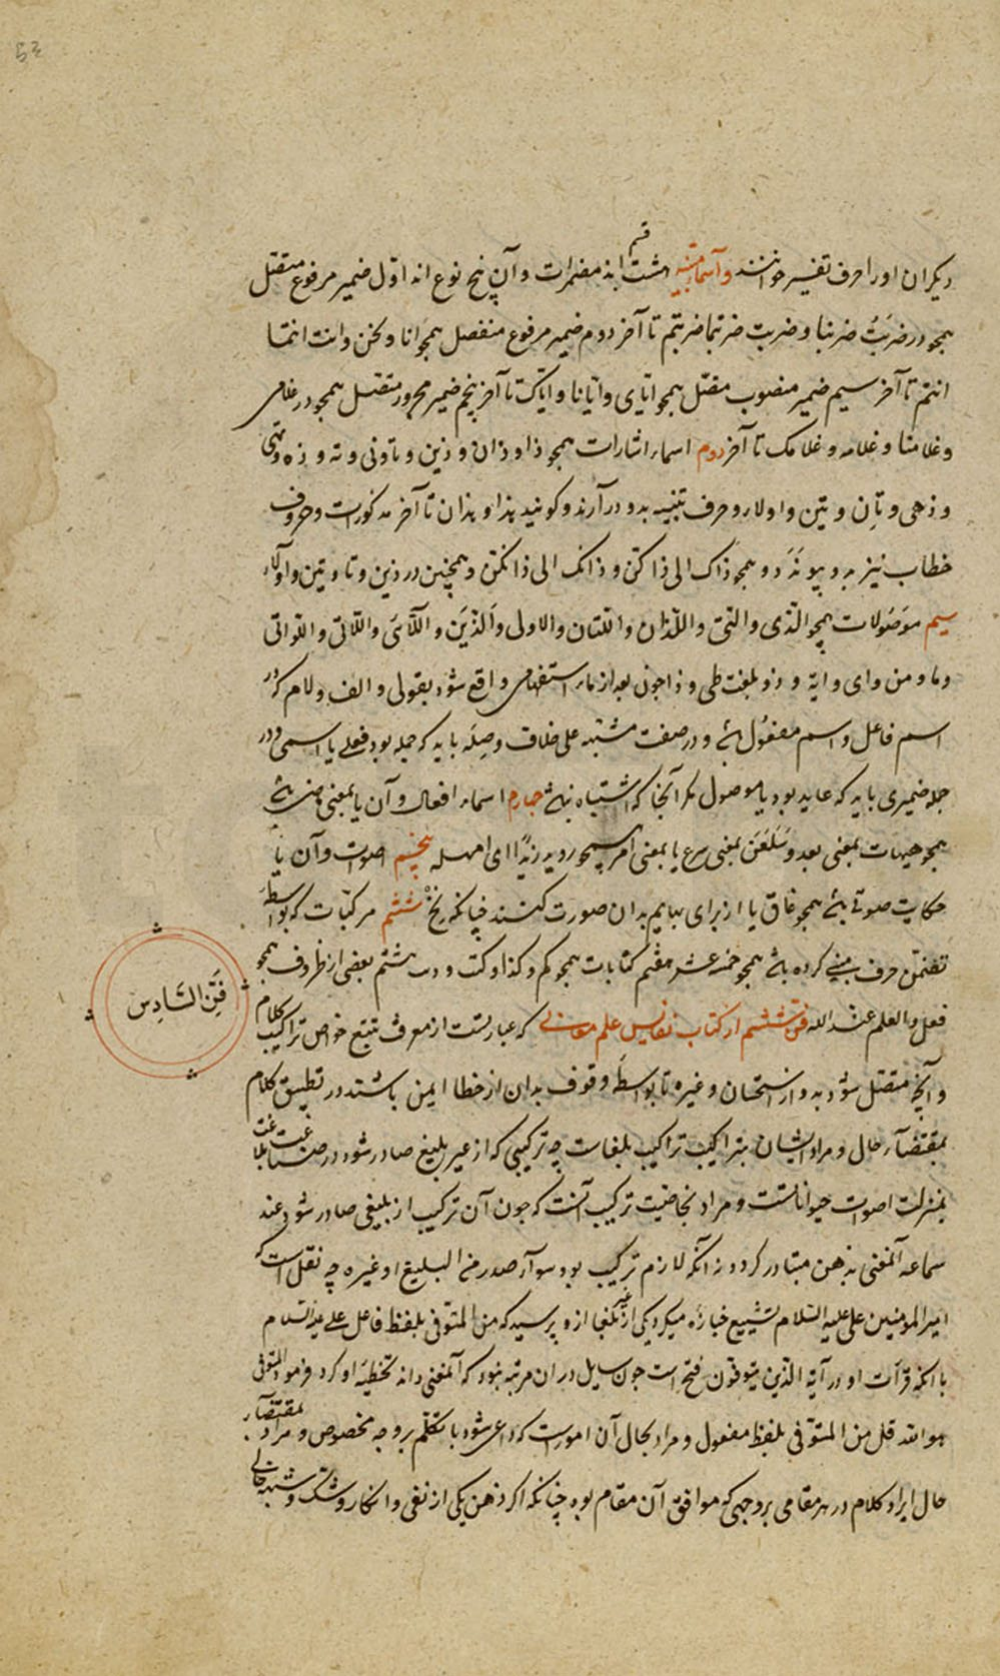 53
دیگران او را حرف تفسیر خوانند و اسماء مبنیه هشت قسم اند مضمرات و آن پنج نوع اند اول ضمیر مرفوع متصل
همچو در ضربتُ ضربنا و ضربت ضربتما ضربتم تا آخر دوم ضمیر مرفوع منفصل همچو انا و نحن و انت انتما
انتم تا آخر سیم ضمیر منصوب همچو ایای و ایانا و ایاک تا آخر پنجم ضمیر مجرور متصل همچو در غلامی
و غلامنا و غلامه و غلامک تا آخر دوم اسماء اشارات همچو ذا و ذان و ذین و تا و تی و ته و ذه و تهی
و ذهی و تان و تین و اولاء و حرف تنبیه بدو درآرند و گویند هذا و هذان تا آخر مذکورات و حروف
خطاب نیز بدو پیوندد و همچو ذاک الی ذاکن و ذانک الی ذانکن و همچنین در ذین و تا و تین و اولاء
سیم موصولات همچو الذی و التی و اللذان و اللتان و الاولی و الذین و اللائی و اللاتی و اللواتی
و ما و من و ای و ایة و ذو بلغت طی و ذا چون بعد از ماء استفهامی واقع شود بقولی و الف و لام که در
اسم فاعل و اسم مفعول باشد و در صفت مشبهه علی خلاف و صله باید که جمله بود فعلی یا اسمی و در
جمله ضمیری باید که عاید بود با موصول مگر آنجا که اشتباه نباشد چهارم اسماء افعال و آن یا بمعنی ماضی باشد
همچو هیهات بمعنی بعد و سرعان بمعنی سرع یا بمعنی امر همچو روید زیدًا ای امهله پنجم اصوات و آن یا
حکایت صوتی باشد همچو غاق یا از برای بهایم بدان صورت کنند چنانکه نخ ششم مرکبات که بواسطه
تضمن حرف مبنی کرده باشد همچو خمسة عشر هفتم کنایات همچو کم و کذا و کیت و ذیت هشتم بعضی از ظروف همچو
قبل والعلم عند الله فن ششم از کتاب نفایس علم معانی که عبارتست از معرفت تتبع خواص تراکیب کلام
و آنچه متصل شود بدو از استحسان و غیره تا بواسطه وقوف بدان از خطا ایمن باشند در تطبیق کلام
بمقتضاء حال و مراد ایشان بتراکیب تراکیب بلغاست چه ترکیبی که از غیر بلیغ صادر شود در صناعت بلاغت
بمنزلت اصوات حیواناتست و مراد بخاصیت ترکیب آنست که چون آن ترکیب از بلیغی صادر شود عند
سماعه آن معنی بذهن متبادر گردد نه آنکه لازم ترکیب بود سواء صدر من البلیغ او غیره چه نقل است که
امیر المومنین علی علیه السلام تشییع جنازه میکرد یکی از غیر بلغا ازو پرسید که من المتوفی بلفظ فاعل علی علیه السلام
با آنکه قرائت او در آیه الذین یتوفون فتح است چون سایل در ان مرتبه نبود که آن معنی داند تخطیه او کرد و فرمود المتوفی
هو الله قل من المتوفی بلفظ مفعول و مراد بحال آن امورست که داعی شود با تکلم بر وجه مخصوص و مراد بمقتضاء
حال ایراد کلام در هر مقامی بر وجهی که موافق آن مقام بود چنانکه اگر ذهن یکی از نفی و انکار و شک و شبهه خالی
فن السادس